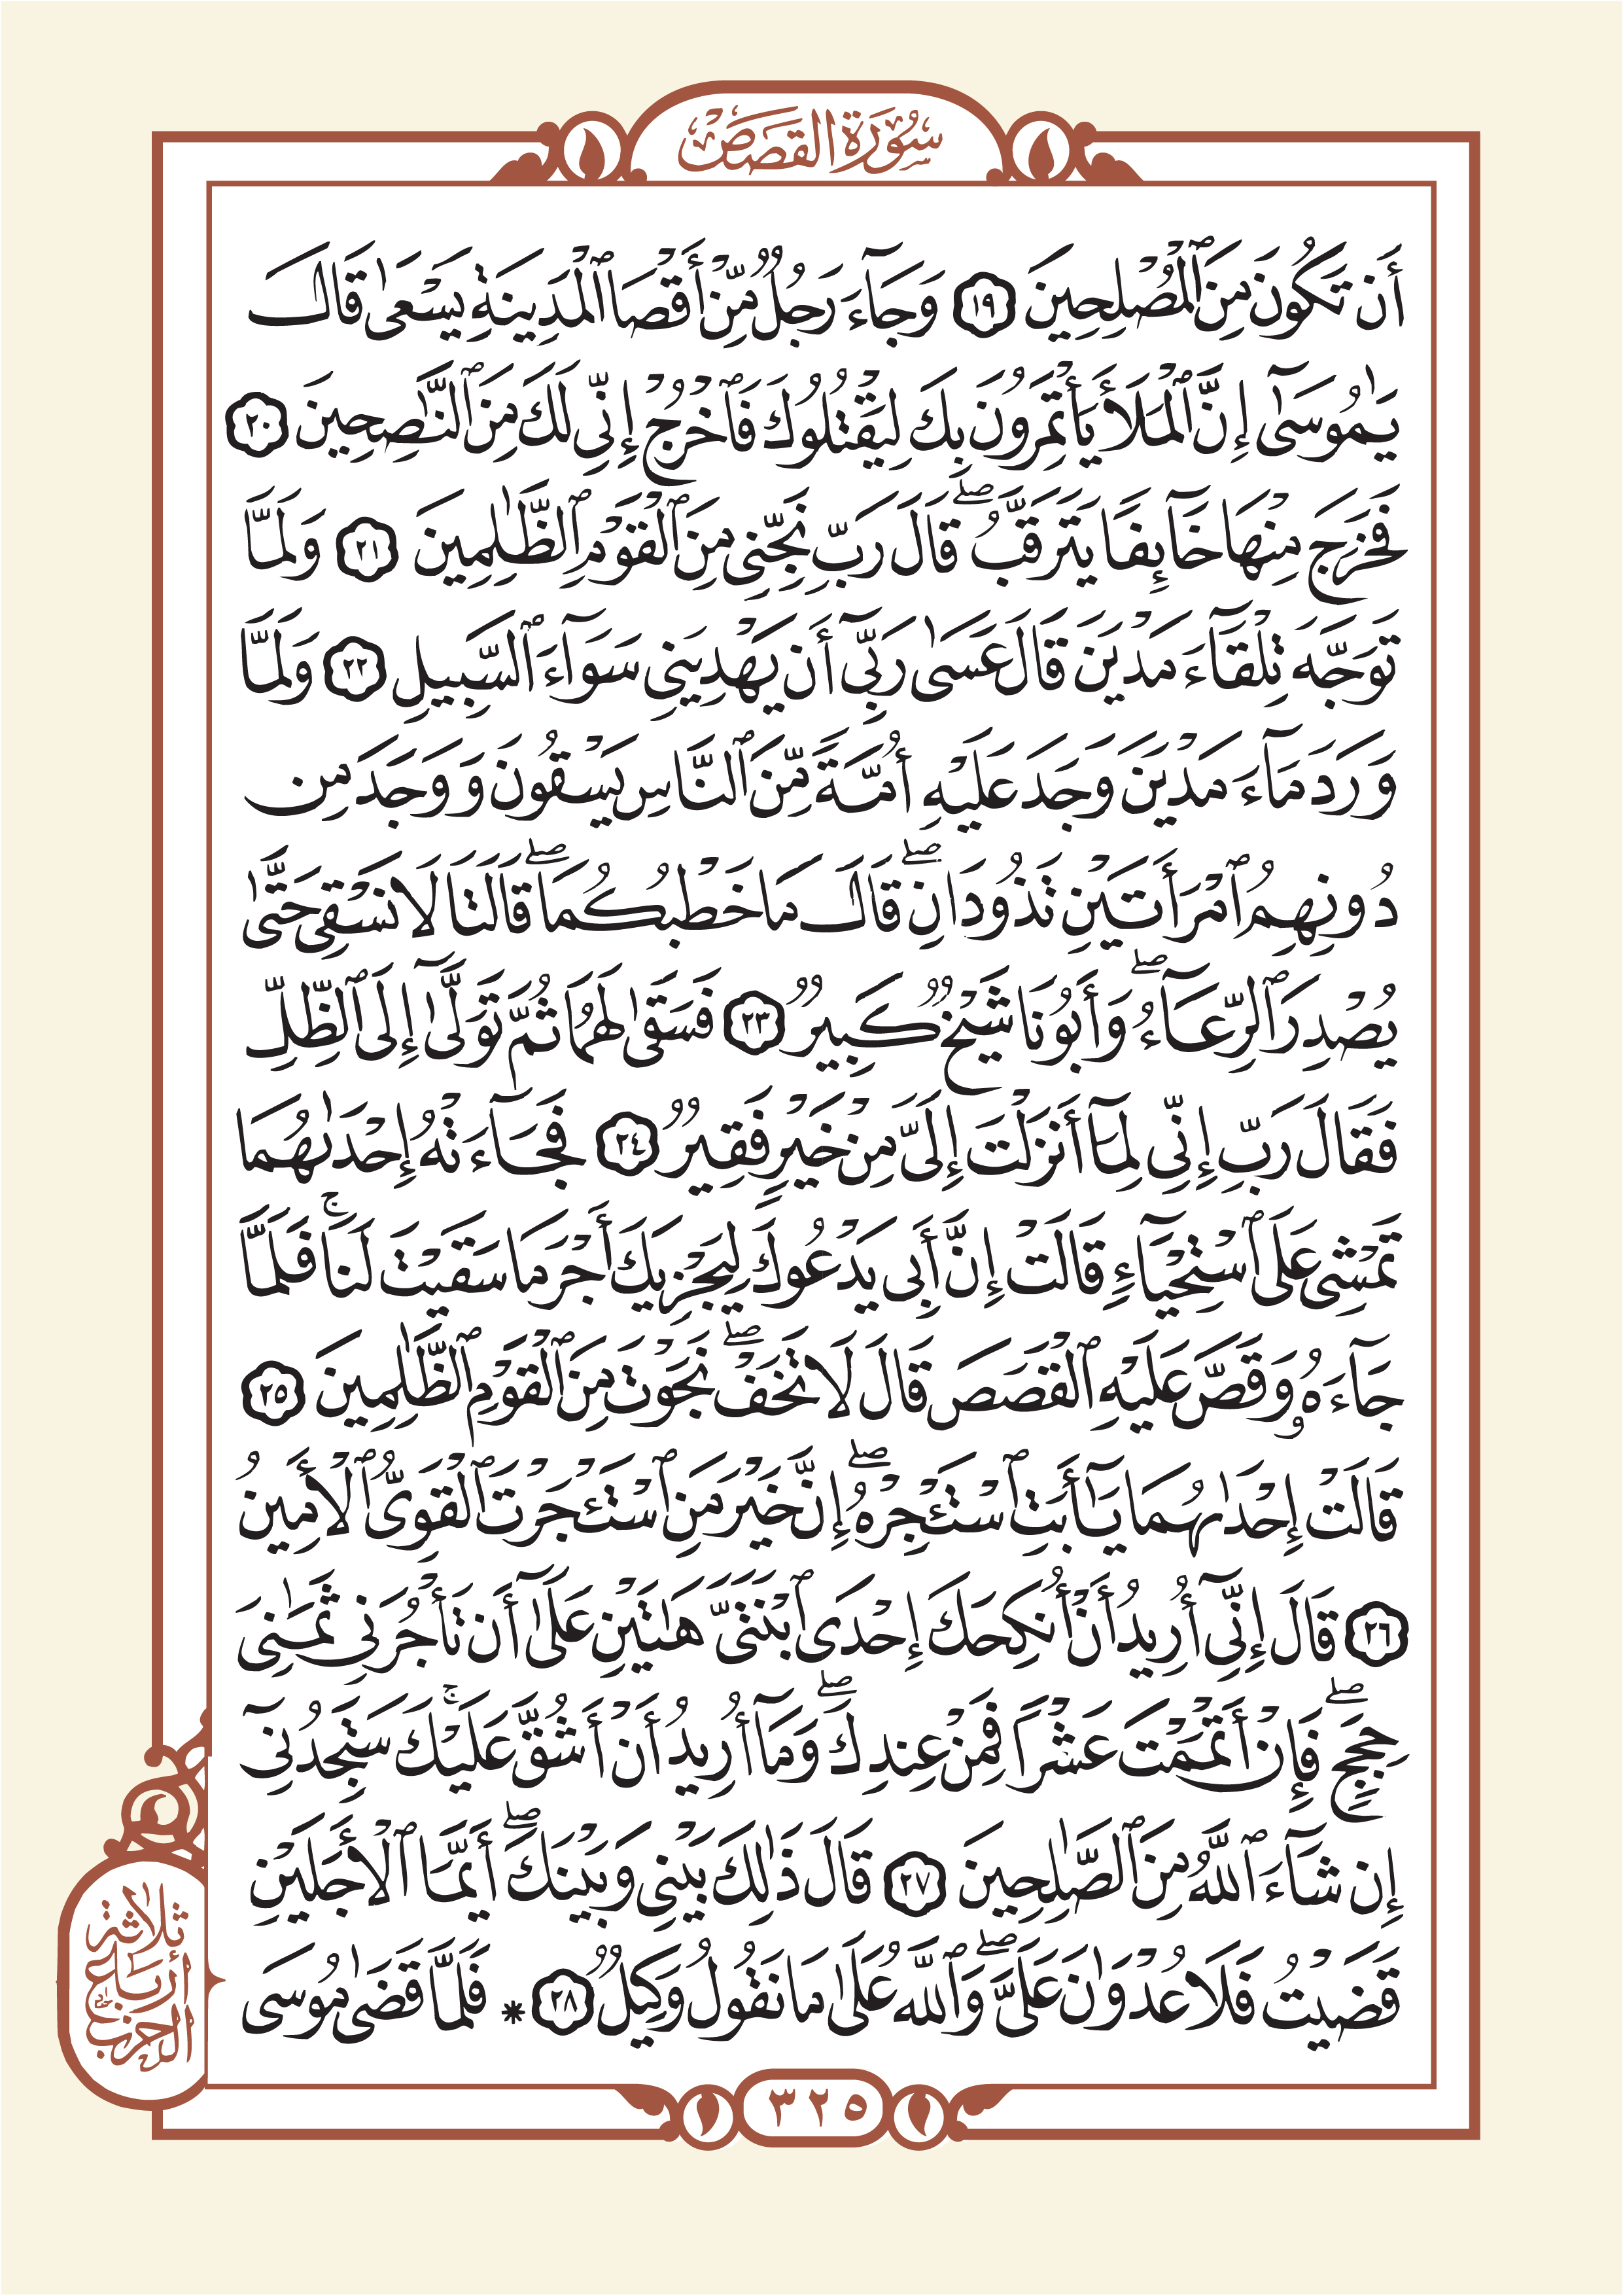 سُورَةُ القَصَصِ
أَن تَكُونَ مِنَ ٱلْمُصْلِحِينَ ١٩ وَجَآءَ رَجُلٌ مِّنْ أَقْصَا ٱلْمَدِينَةِ يَسْعَىٰ قَالَ
يَـٰمُوسَىٰٓ إِنَّ ٱلْمَلَأَ يَأْتَمِرُونَ بِكَ لِيَقْتُلُوكَ فَٱخْرُجْ إِنِّى لَكَ مِنَ ٱلنَّـٰصِحِينَ ٢٠
فَخَرَجَ مِنْهَا خَآئِفًا يَتَرَقَّبُ ۖ قَالَ رَبِّ نَجِّنِى مِنَ ٱلْقَوْمِ ٱلظَّـٰلِمِينَ ٢١ وَلَمَّا
تَوَجَّهَ تِلْقَآءَ مَدْيَنَ قَالَ عَسَىٰ رَبِّىٓ أَن يَهْدِيَنِى سَوَآءَ ٱلسَّبِيلِ ٢٢ وَلَمَّا
وَرَدَ مَآءَ مَدْيَنَ وَجَدَ عَلَيْهِ أُمَّةً مِّنَ ٱلنَّاسِ يَسْقُونَ وَوَجَدَ مِن
دُونِهِمُ ٱمْرَأَتَيْنِ تَذُودَانِ ۖ قَالَ مَا خَطْبُكُمَا ۖ قَالَتَا لَا نَسْقِى حَتَّىٰ
يُصْدِرَ ٱلرِّعَآءُ ۖ وَأَبُونَا شَيْخٌ كَبِيرٌ ٢٣ فَسَقَىٰ لَهُمَا ثُمَّ تَوَلَّىٰٓ إِلَى ٱلظِّلِّ
فَقَالَ رَبِّ إِنِّى لِمَآ أَنزَلْتَ إِلَىَّ مِنْ خَيْرٍ فَقِيرٌ ٢٤ فَجَآءَتْهُ إِحْدَىٰهُمَا
تَمْشِى عَلَى ٱسْتِحْيَآءٍ قَالَتْ إِنَّ أَبِى يَدْعُوكَ لِيَجْزِيَكَ أَجْرَ مَا سَقَيْتَ لَنَا ۚ فَلَمَّا
جَآءَهُۥ وَقَصَّ عَلَيْهِ ٱلْقَصَصَ قَالَ لَا تَخَفْ ۖ نَجَوْتَ مِنَ ٱلْقَوْمِ ٱلظَّـٰلِمِينَ ٢٥
قَالَتْ إِحْدَىٰهُمَا يَـٰٓأَبَتِ ٱسْتَـْٔجِرْهُ ۖ إِنَّ خَيْرَ مَنِ ٱسْتَـْٔجَرْتَ ٱلْقَوِىُّ ٱلْأَمِينُ
٢٦ قَالَ إِنِّىٓ أُرِيدُ أَنْ أُنكِحَكَ إِحْدَى ٱبْنَتَىَّ هَـٰتَيْنِ عَلَىٰٓ أَن تَأْجُرَنِى ثَمَـٰنِىَ
حِجَجٍ ۖ فَإِنْ أَتْمَمْتَ عَشْرًا فَمِنْ عِندِكَ ۖ وَمَآ أُرِيدُ أَنْ أَشُقَّ عَلَيْكَ ۚ سَتَجِدُنِىٓ
إِن شَآءَ ٱللَّهُ مِنَ ٱلصَّـٰلِحِينَ ٢٧ قَالَ ذَٰلِكَ بَيْنِى وَبَيْنَكَ ۖ أَيَّمَا ٱلْأَجَلَيْنِ
قَضَيْتُ فَلَا عُدْوَٰنَ عَلَىَّ ۖ وَٱللَّهُ عَلَىٰ مَا نَقُولُ وَكِيلٌ ٢٨ * فَلَمَّا قَضَىٰ مُوسَى
ثلاثة
أرباع
الحزب
٣٢٥